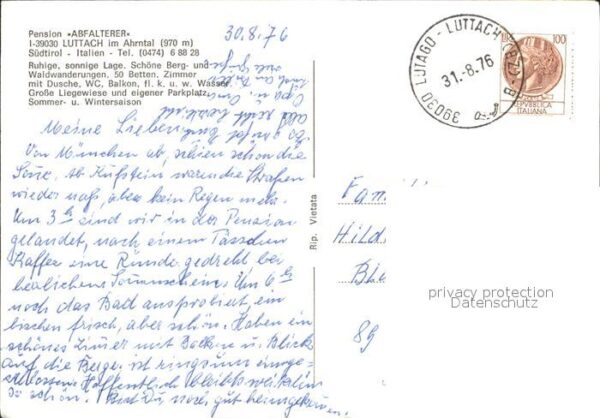 Pension »ABFALTERER«
I-39030 LUTTACH im Ahrntal (970 m)
Südtirol - Italien - Tel. (0474) 6 88 28
Ruhige, sonnige Lage. Schöne Berg- und
Waldwanderungen. 50 Betten. Zimmer
mit Dusche, WC, Balkon, fl. k. u. w. Wasser.
Große Liegewiese und eigener Parkplatz.
Sommer- u. Wintersaison
30.8.76
Meine Lieben,
Von München ab, schien schon die
Sonne. Ab Kufstein waren die Straßen
wieder naß, aber kein Regen mehr.
Um 3 h sind wir in der Pension
gelandet, nach einem Tässchen
Kaffee eine Runde gedreht bei
herrlichem Sonnenschein. Um 6 h
noch das Bad ausprobiert, ein
bischen frisch, aber schön. Haben ein
schönes Zimmer mit Balkon u. Blick
auf die Berge, ist ringsum einge-
schlossen. Hoffentlich bleibt's weiterhin
so schön. Bist Du noch gut heimgekommen.
Rip. Vietata
39030 LUTAGO - LUTTACH (BZ)
31.-8.76
100
REPVBBLICA
ITALIANA
Fam
Hild
Bl
89
privacy protection
Datenschutz